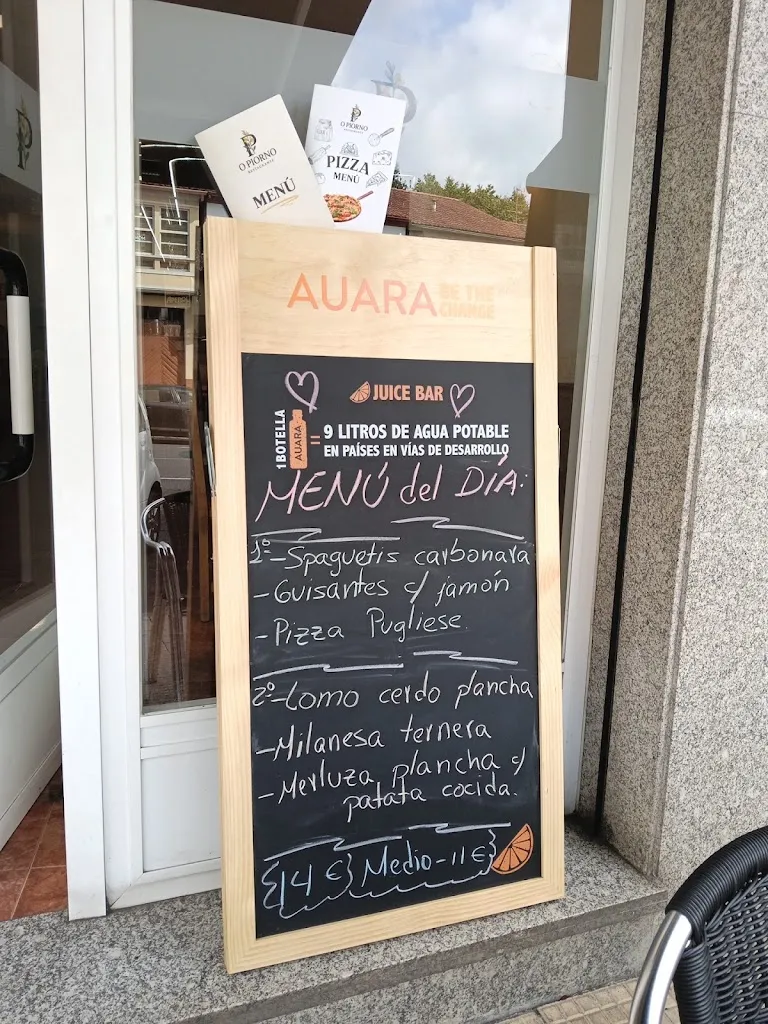 O PIORNO
RESTAURANTE
MENÚ
O PIORNO
RESTAURANTE
PIZZA
MENÚ
AUARA BE THE
CHANGE
JUICE BAR
1 BOTELLA
AUARA
= 9 LITROS DE AGUA POTABLE
EN PAÍSES EN VÍAS DE DESARROLLO
MENÚ del DÍA:
1º-Spaguetis carbonara
-Guisantes c/ jamón
-Pizza Pugliese.
2º-Lomo cerdo plancha
-Milanesa ternera
-Merluza plancha c/
patata cocida.
{14 €} Medio-11 €}